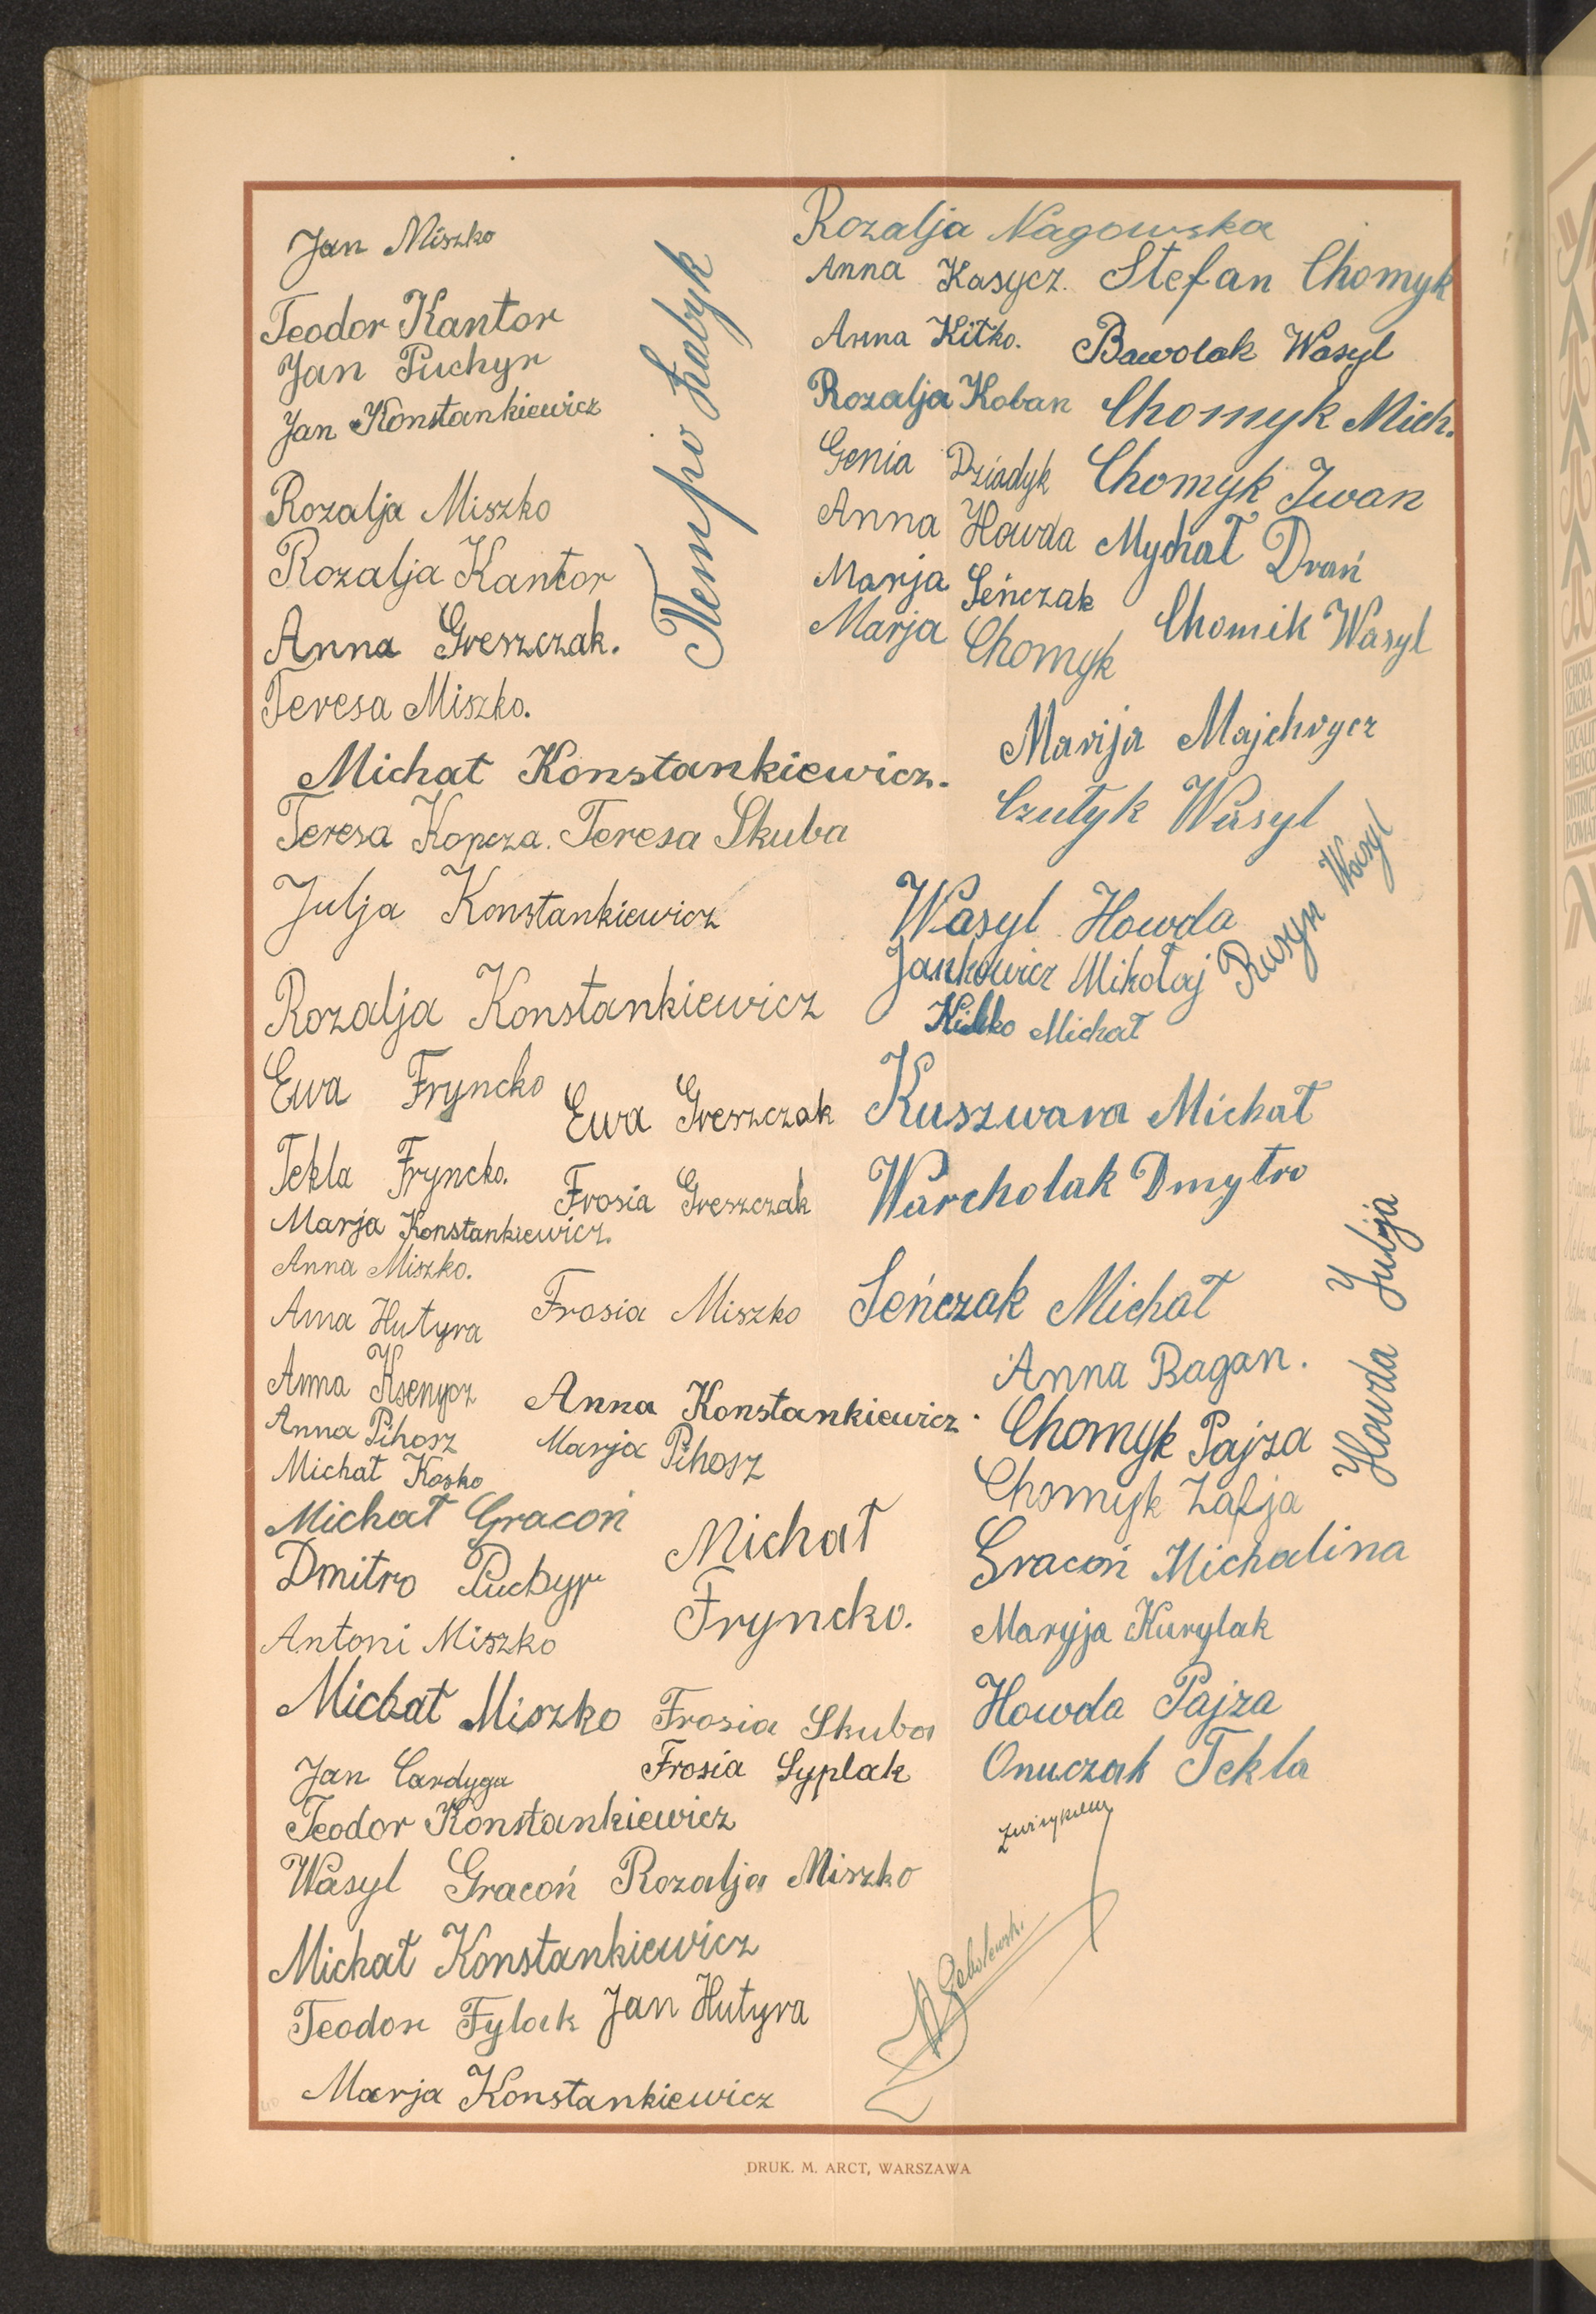 Jan Miszko
Teodor Kantor
Jan Puchyr
Jan Konstankiewicz
Rozalja Miszko
Rozalja Kantor
Anna Greszczak.
Teresa Miszko.
Michał Konstankiewicz.
Teresa Kopcza. Teresa Skuba
Julja Konstankiewicz
Rozalja Konstankiewicz
Ewa Fryncko
Ewa Greszczak
Tekla Fryncko.
Frosia Greszczak
Marja Konstankiewicz.
Anna Miszko.
Anna Hutyra
Frosia Miszko
Anna Ksenycz
Anna Konstankiewicz.
Anna Pihosz
Marja Pihosz
Michał Kosko
Michał Gracoń
Michał
Fryncko.
Dmitro Puchyr
Antoni Miszko
Michał Miszko
Frosia Skuba
Jan Cardyga
Frosia Syplak
Teodor Konstankiewicz
Wasyl Gracoń
Rozalja Miszko
Michał Konstankiewicz
Teodor Fylak
Jan Hutyra
Marja Konstankiewicz
Петро
Rozalja Nagowska
Anna Kasycz.
Stefan Chomyk
Anna Kitko.
Bawolak Wasyl
Rozalja Koban
Chomyk Mich.
Genia Dziadyk
Chomyk Iwan
Anna Howda
Mychał Drań
Marja Seńczak
Chomik Wasyl
Marja Chomyk
Marija Majchrycz
Czułyk Wasyl
Wasyl Howda
Rusyn Wasyl
Jankowicz Mikołaj
Michał
Kuszwara Michał
Warcholak Dmytro
Seńczak Michał
Howda Julja
Anna Bagan.
Chomyk Pajza
Chomyk Zafja
Gracoń Michalina
Maryja Kurylak
Howda Pajza
Onuczak Tekla
Sobolewski
DRUK. M. ARCT, WARSZAWA